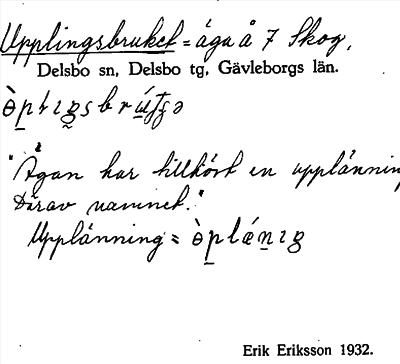 Upplingsbruket = äga å 7 Skog.
Delsbo sn, Delsbo tg, Gävleborgs län.
"Ägan har tillhört en upplänning
Därav namnet."
Upplänning =
Erik Eriksson 1932.